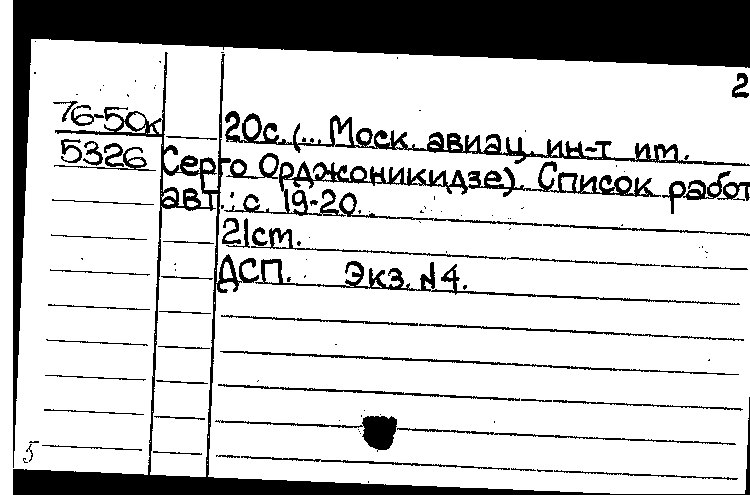 2
76-50к
5326
20с. (... Моск. авиац. ин-т им.
Серго Орджоникидзе). Список работ
авт.: с. 19-20.
21ст.
ДСП. Экз. №4.
5